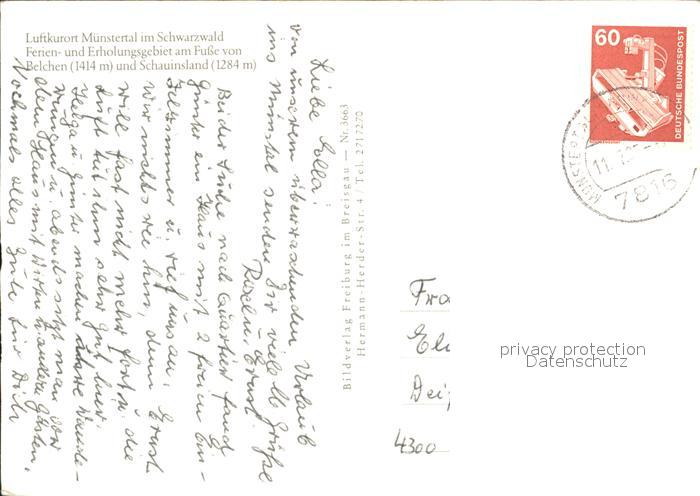 Luftkurort Münstertal im Schwarzwald
Ferien- und Erholungsgebiet am Fuße von
Belchen (1414 m) und Schauinsland (1284 m)
Liebe Ella!
Von unserem überraschenden Urlaub
ins Münstal senden Dir viele lb Grüße
Ernst.
Bei der Suche nach Quartier fand
Günter ein Haus mit 2 freien Ein-
zelzimmer u. rief uns an. Ernst
wir nichts wie hin, denn
will fast nicht mehr fort u. die
Luft tut ihm sehr gut hier.
Helga u. Günter machen Wande-
rungen u. abends sitzt man vor
dem Haus mit Wirten u. andern Gästen.
Nochmals alles Gute für Dich
Bildverlag Freiburg im Breisgau — Nr. 3663
Hermann-Herder-Str. 4 / Tel. 2717270
60
DEUTSCHE BUNDESPOST
MÜNSTERTAL
7816
Fra
El
Dei
4300
privacy protection
Datenschutz